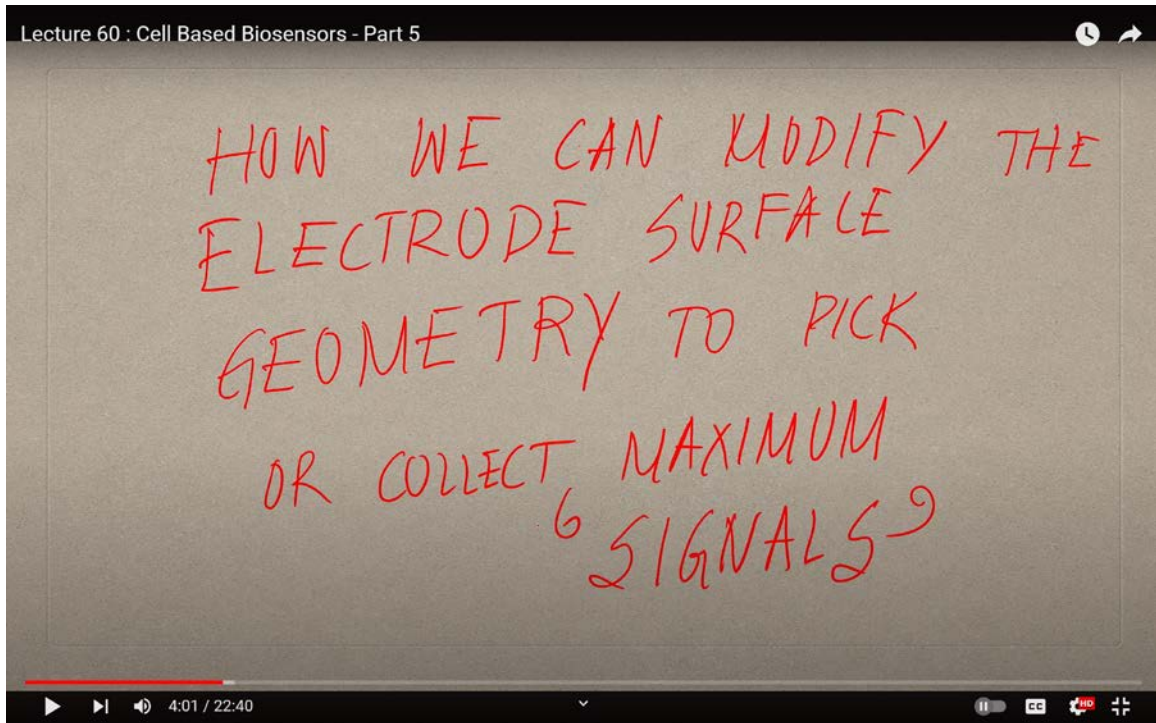 Lecture 60 : Cell Based Biosensors - Part 5
HOW WE CAN MODIFY THE
ELECTRODE SURFACE
GEOMETRY TO PICK
OR COLLECT MAXIMUM
‘SIGNALS’
4:01 / 22:40
CC
HD